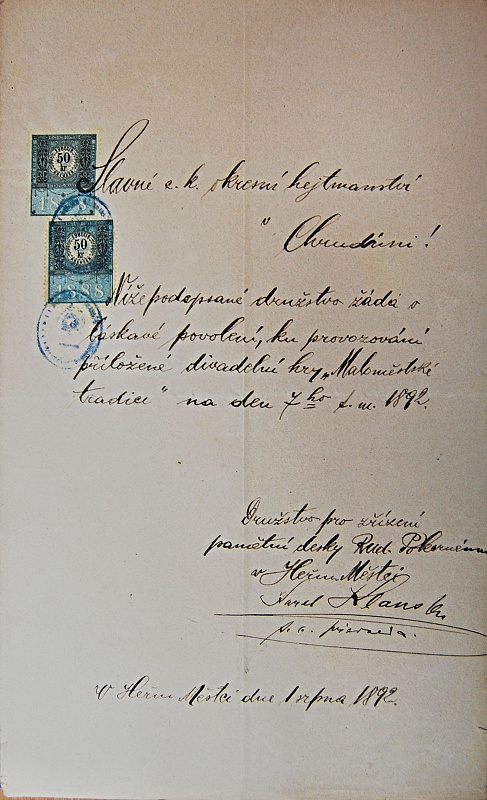 50
kr
1888
50
kr
1888
Slavné c. k. okresní hejtmanství
v
Chrudimi!
Nížepodepsané družstvo žádá o
láskavé povolení, ku provozování
přiložené divadelní hry „Maloměstské
tradice“ na den 7ho t. m. 1892.
Družstvo pro zřízení
pamětní desky Rud. Pokornému
v Heřm. Městci
Karel
t. č.
V Heřm. Městci dne 1 srpna 1892.